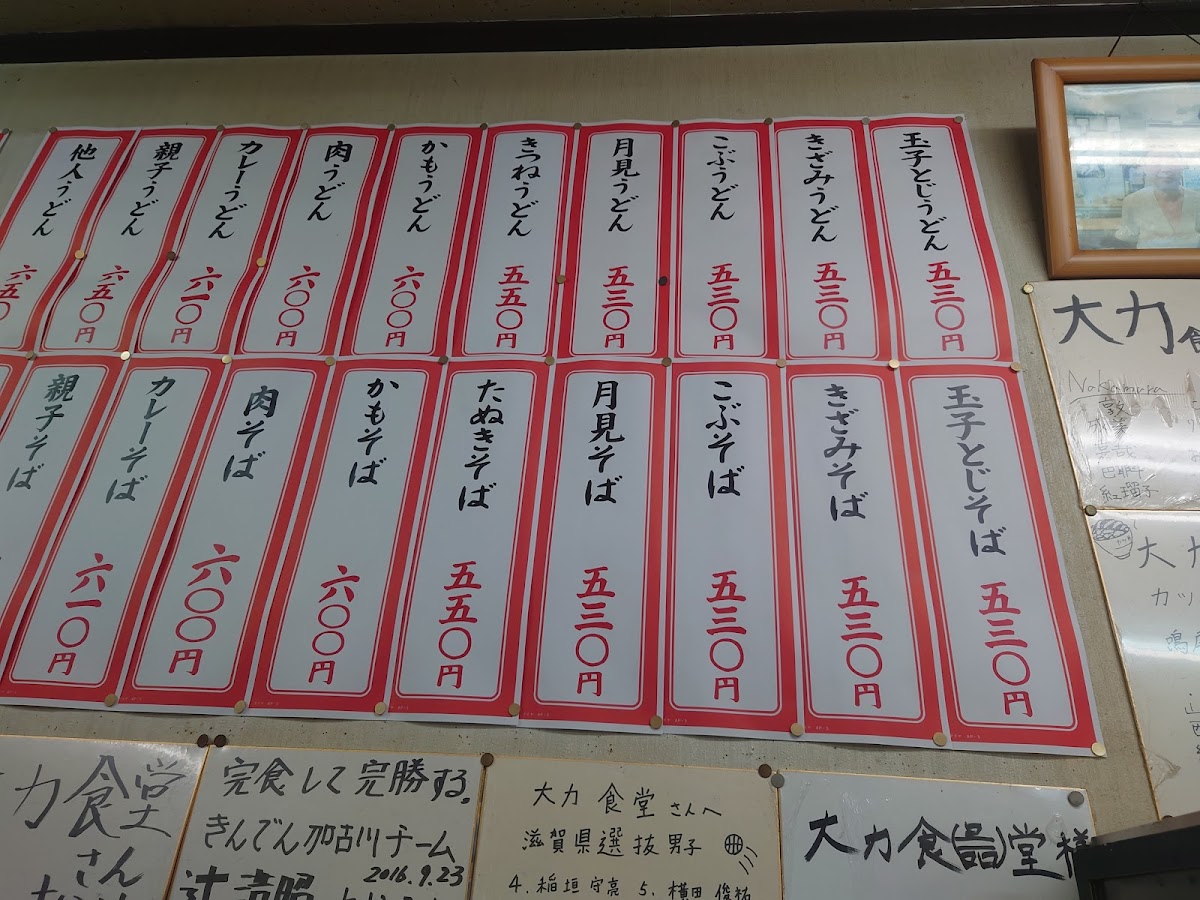 玉子とじうどん 五三〇円
きざみうどん 五三〇円
こぶうどん 五三〇円
月見うどん 五三〇円
きつねうどん 五五〇円
かもうどん 六〇〇円
肉うどん 六〇〇円
カレーうどん 六一〇円
親子うどん 六五〇円
他人うどん 六五〇
玉子とじそば 五三〇円
きざみそば 五三〇円
こぶそば 五三〇円
月見そば 五三〇円
たぬきそば 五五〇円
かもそば 六〇〇円
肉そば 六〇〇円
カレーそば 六一〇円
親子そば
大力食
Nakamura
紅瑠子
大力
カッ
力食堂
さん
完食して完勝する。
きんでん加古川チーム
2016.9.23
大力食堂さんへ
滋賀県選抜男子
4. 稲垣守亮 5. 横田俊祐
大力食堂様